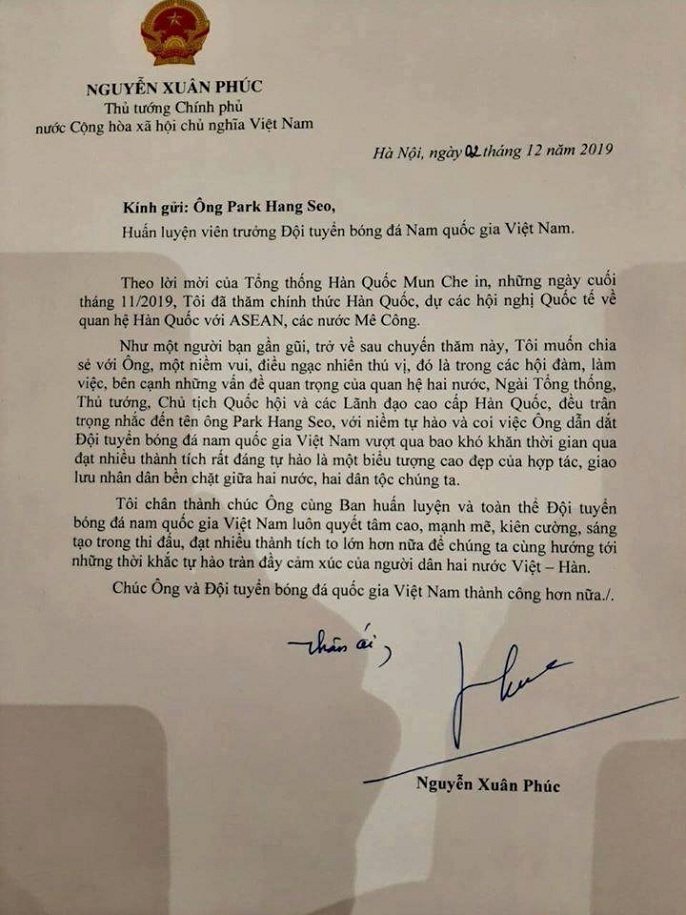 NGUYỄN XUÂN PHÚC
Thủ tướng Chính phủ
nước Cộng hòa xã hội chủ nghĩa Việt Nam
Hà Nội, ngày 02 tháng 12 năm 2019
Kính gửi: Ông Park Hang Seo,
Huấn luyện viên trưởng Đội tuyển bóng đá Nam quốc gia Việt Nam.
Theo lời mời của Tổng thống Hàn Quốc Mun Che in, những ngày cuối
tháng 11/2019, Tôi đã thăm chính thức Hàn Quốc, dự các hội nghị Quốc tế về
quan hệ Hàn Quốc với ASEAN, các nước Mê Công.
Như một người bạn gần gũi, trở về sau chuyến thăm này, Tôi muốn chia
sẻ với Ông, một niềm vui, điều ngạc nhiên thú vị, đó là trong các hội đàm, làm
việc, bên cạnh những vấn đề quan trọng của quan hệ hai nước, Ngài Tổng thống,
Thủ tướng, Chủ tịch Quốc hội và các Lãnh đạo cấp cao Hàn Quốc, đều trân
trọng nhắc đến tên ông Park Hang Seo, với niềm tự hào và coi việc Ông dẫn dắt
Đội tuyển bóng đá nam quốc gia Việt Nam vượt qua bao khó khăn thời gian qua
đạt nhiều thành tích rất đáng tự hào là một biểu tượng cao đẹp của hợp tác, giao
lưu nhân dân bền chặt giữa hai nước, hai dân tộc chúng ta.
Tôi chân thành chúc Ông cùng Ban huấn luyện và toàn thể Đội tuyển
bóng đá nam quốc gia Việt Nam luôn quyết tâm cao, mạnh mẽ, kiên cường, sáng
tạo trong thi đấu, đạt nhiều thành tích to lớn hơn nữa để chúng ta cùng hướng tới
những thời khắc tự hào tràn đầy cảm xúc của người dân hai nước Việt – Hàn.
Chúc Ông và Đội tuyển bóng đá quốc gia Việt Nam thành công hơn nữa./.
Thân ái,
Nguyễn Xuân Phúc